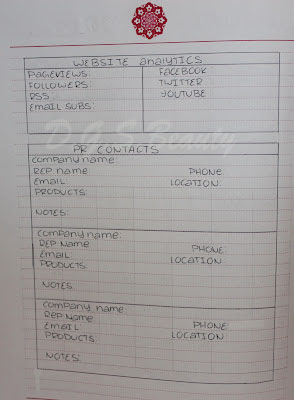 WEBSITE analytics
PAGEVIEWS: FACEBOOK:
FOLLOWERS: TWITTER:
RSS: YOUTUBE:
EMAIL SUBS:
D.G.S Beauty
PR CONTACTS
Company name:
REP name PHONE:
Email LOCATION:
PRODUCTS:
NOTES:
Company name:
REP Name PHONE
Email LOCATION
PRODUCTS
NOTES:
Company name:
REP Name
Email PHONE
PRODUCTS: LOCATION
NOTES: